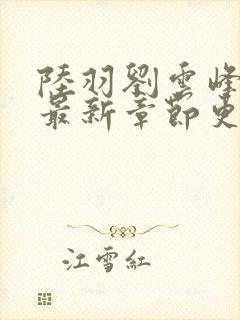 陸羽劉雲峰
最新章節更
江雪紅